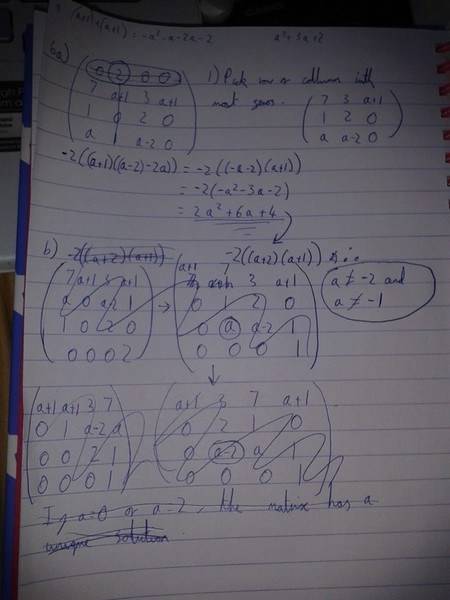 (a+1)(a+1) = -a²-a-2a-2 a²+3a+2
6a)
0 2 0 0
7 a+1 3 a+1
1 0 2 0
a 1 a-2 0
1) Pick row or collumn with
most zeros.
7 3 a+1
1 2 0
a a-2 0
-2((a+1)(a-2-2a)) = -2((-a-2)(a+1))
= -2(-a²-3a-2)
= 2a²+6a+4
b) -2((a+2)(a+1)) -2((a+2)(a+1)) i.e
7 a+1 3 a+1
a 0 a-2 1
1 0 2 0
0 0 0 2
→
a+1 7 3 a+1
0 1 2 0
0 a a-2 1
0 0 0 1
a ≠ -2 and
a ≠ -1
a+1 a+1 3 7
0 1 a-2 a
0 0 2 1
0 0 0 1
a+1 3 7 a+1
0 2 1 0
0 a-2 a 1
0 0 0 1
If a=0 or a-2, the matrix has a
unique solution.